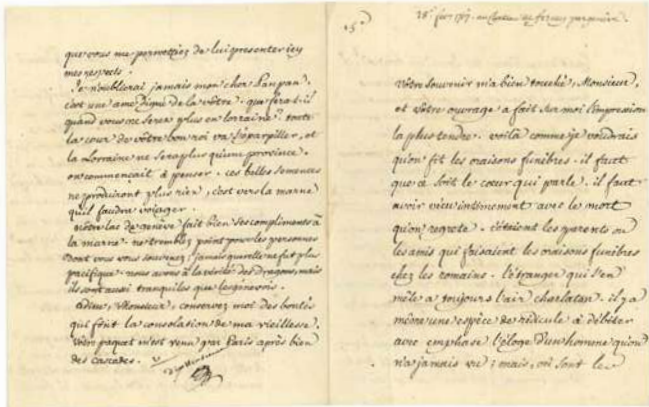 que vous me permettiez de lui presenter icy
mes respects.
Je n'oublierai jamais mon cher Panpan.
c'est une ame digne de la vôtre. que fera t-il
quand vous ne serez plus en lorraine? toute
la cour de vôtre bon roi va s'éparpiller, et
la Lorraine ne sera plus qu'une province.
on commençait à penser. ces belles semences
ne produiront plus rien, c'est vers la marne
qu'il faudra voiager.
nôtre lac de genève fait bien ses compliments à
la marne. ne tremblez point pour les personnes
dont vous vous souvenez, jamais querelle ne fut plus
pacifique. nous avons à la vérité des Dragons, mais
ils sont aussi tranquiles que les genevois.
Adieu, Monsieur, conservez moi des bontés
qui font la consolation de ma vieillesse.
Votre paquet m'est venu par Paris après bien
des cascades.
5
28e fevr au chateau de ferney par genève.
Vôtre souvenir m'a bien touché, Monsieur,
et vôtre ouvrage a fait sur moi l'impression
la plus tendre. voilà comme je voudrais
qu'on fit les oraisons funèbres. il faut
que ce soit le cœur qui parle. il faut
avoir vécu intimement avec le mort
qu'on regrete. c'étaient les parents ou
les amis qui faisaient les oraisons funèbres
chez les romains. l'étranger qui s'en
mêle a toujours l'air charlatan. il y a
même une espèce de ridicule à débiter
avec emphase l'éloge d'un homme qu'on
n'a jamais vu; mais, où sont les